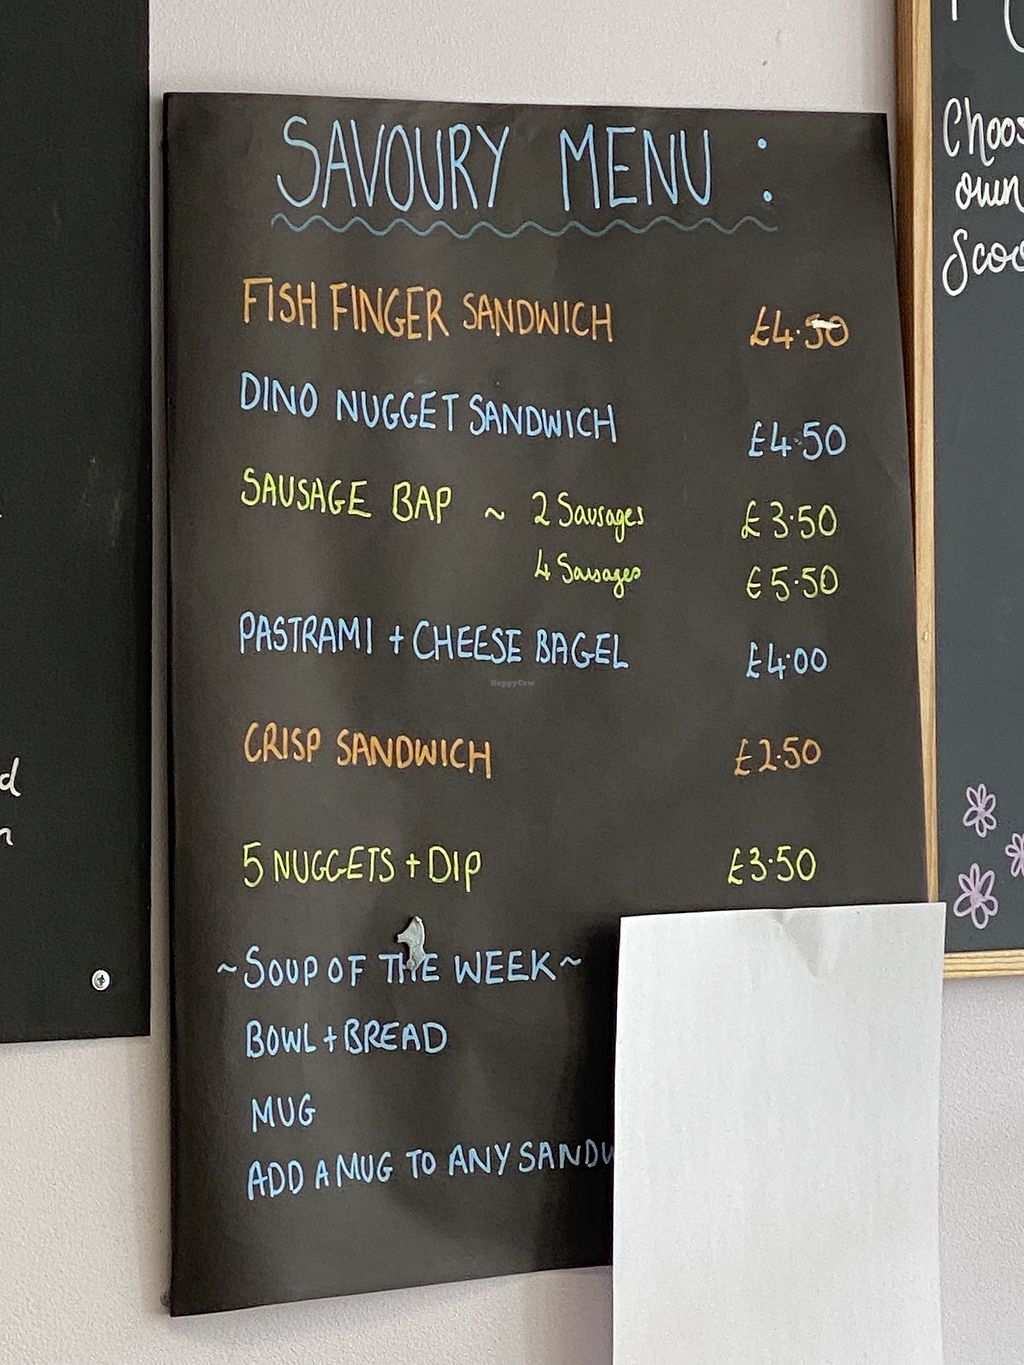 SAVOURY MENU :
FISH FINGER SANDWICH £4.50
DINO NUGGET SANDWICH £4.50
SAUSAGE BAP ~ 2 Sausages £3.50
4 Sausages €5.50
PASTRAMI + CHEESE BAGEL £4.00
HappyCow
CRISP SANDWICH £2.50
5 NUGGETS + DIP £3.50
~ SOUP OF THE WEEK ~
BOWL + BREAD
MUG
ADD A MUG TO ANY SANDW
Choos
own
Scoo